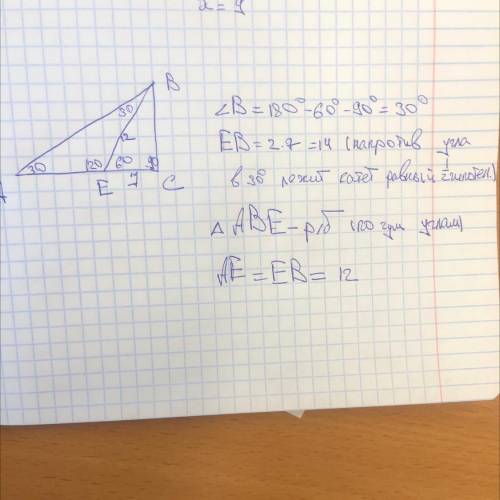 x = 7
B
30
12
30 120 60 90
A E 7 C
∠B = 180° - 60° - 90° = 30°
EB = 2·7 = 14 (напротив угла
в 30° лежит катет равный ½ гипотен.)
△ ABE - р/б (по двум углам)
AE = EB = 12